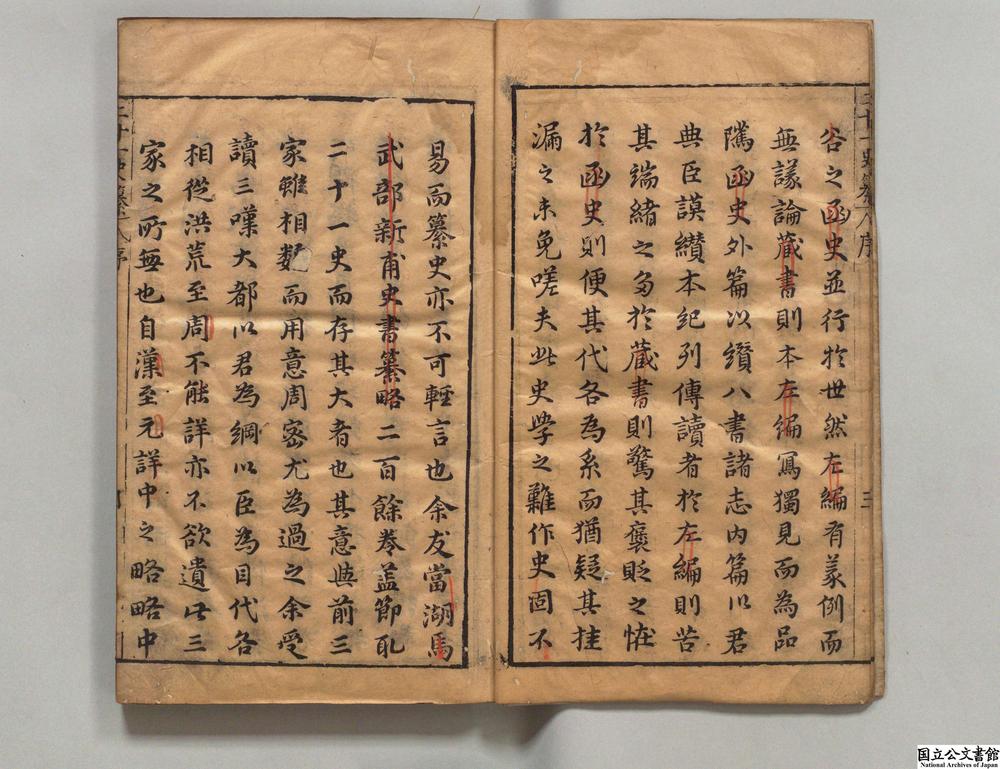 谷之函史並行於世然左編有義例而
無議論藏書則本左編寫獨見而為品
隲函史外篇以纘八書諸志內篇以君
典臣謨纘本紀列傳讀者於左編則苦
其端緒之多於藏書則驚其褒貶之恠
於函史則便其代各為系而猶疑其挂
漏之未免嗟夫此史學之難作史固不
易而纂史亦不可輕言也余友當湖馬
武部新甫史書纂略二百餘卷葢節取
二十一史而存其大者也其意與前三
家雖相類而用意周密尤為過之余受
讀三嘆大都以君為綱以臣為目代各
相從洪荒至周不能詳亦不欲遺此三
家之所無也自漢至元詳中之略略中
国立公文書館
National Archives of Japan